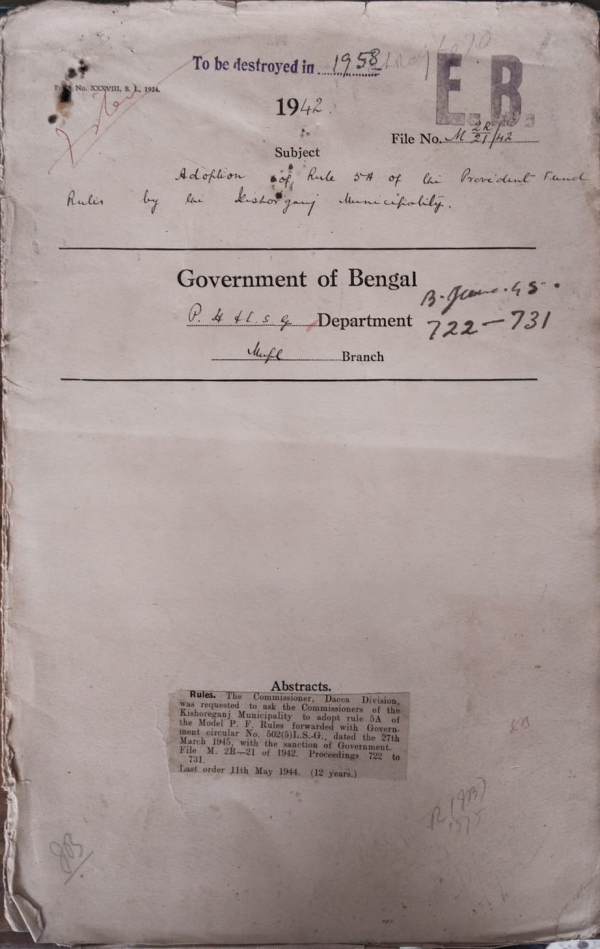 To be destroyed in 1958
E.B.
No. XXXVIII, S. I., 1924.
1942
File No. M 2R/21/42
Subject
Adoption of Rule 5A of the Provident Fund
Rules by the Kishorganj Municipality.
Government of Bengal
P. H & L. S. G Department
B. June. 45.
722–731
Branch
Abstracts.
Rules. The Commissioner, Dacca Division,
was requested to ask the Commissioners of the
Kishoreganj Municipality to adopt rule 5A of
the Model P. F. Rules forwarded with Govern-
ment circular No. 502(5)L.S.-G., dated the 27th
March 1945, with the sanction of Government.
File M. 2R—21 of 1942. Proceedings 722 to
731.
Last order 11th May 1944. (12 years.)